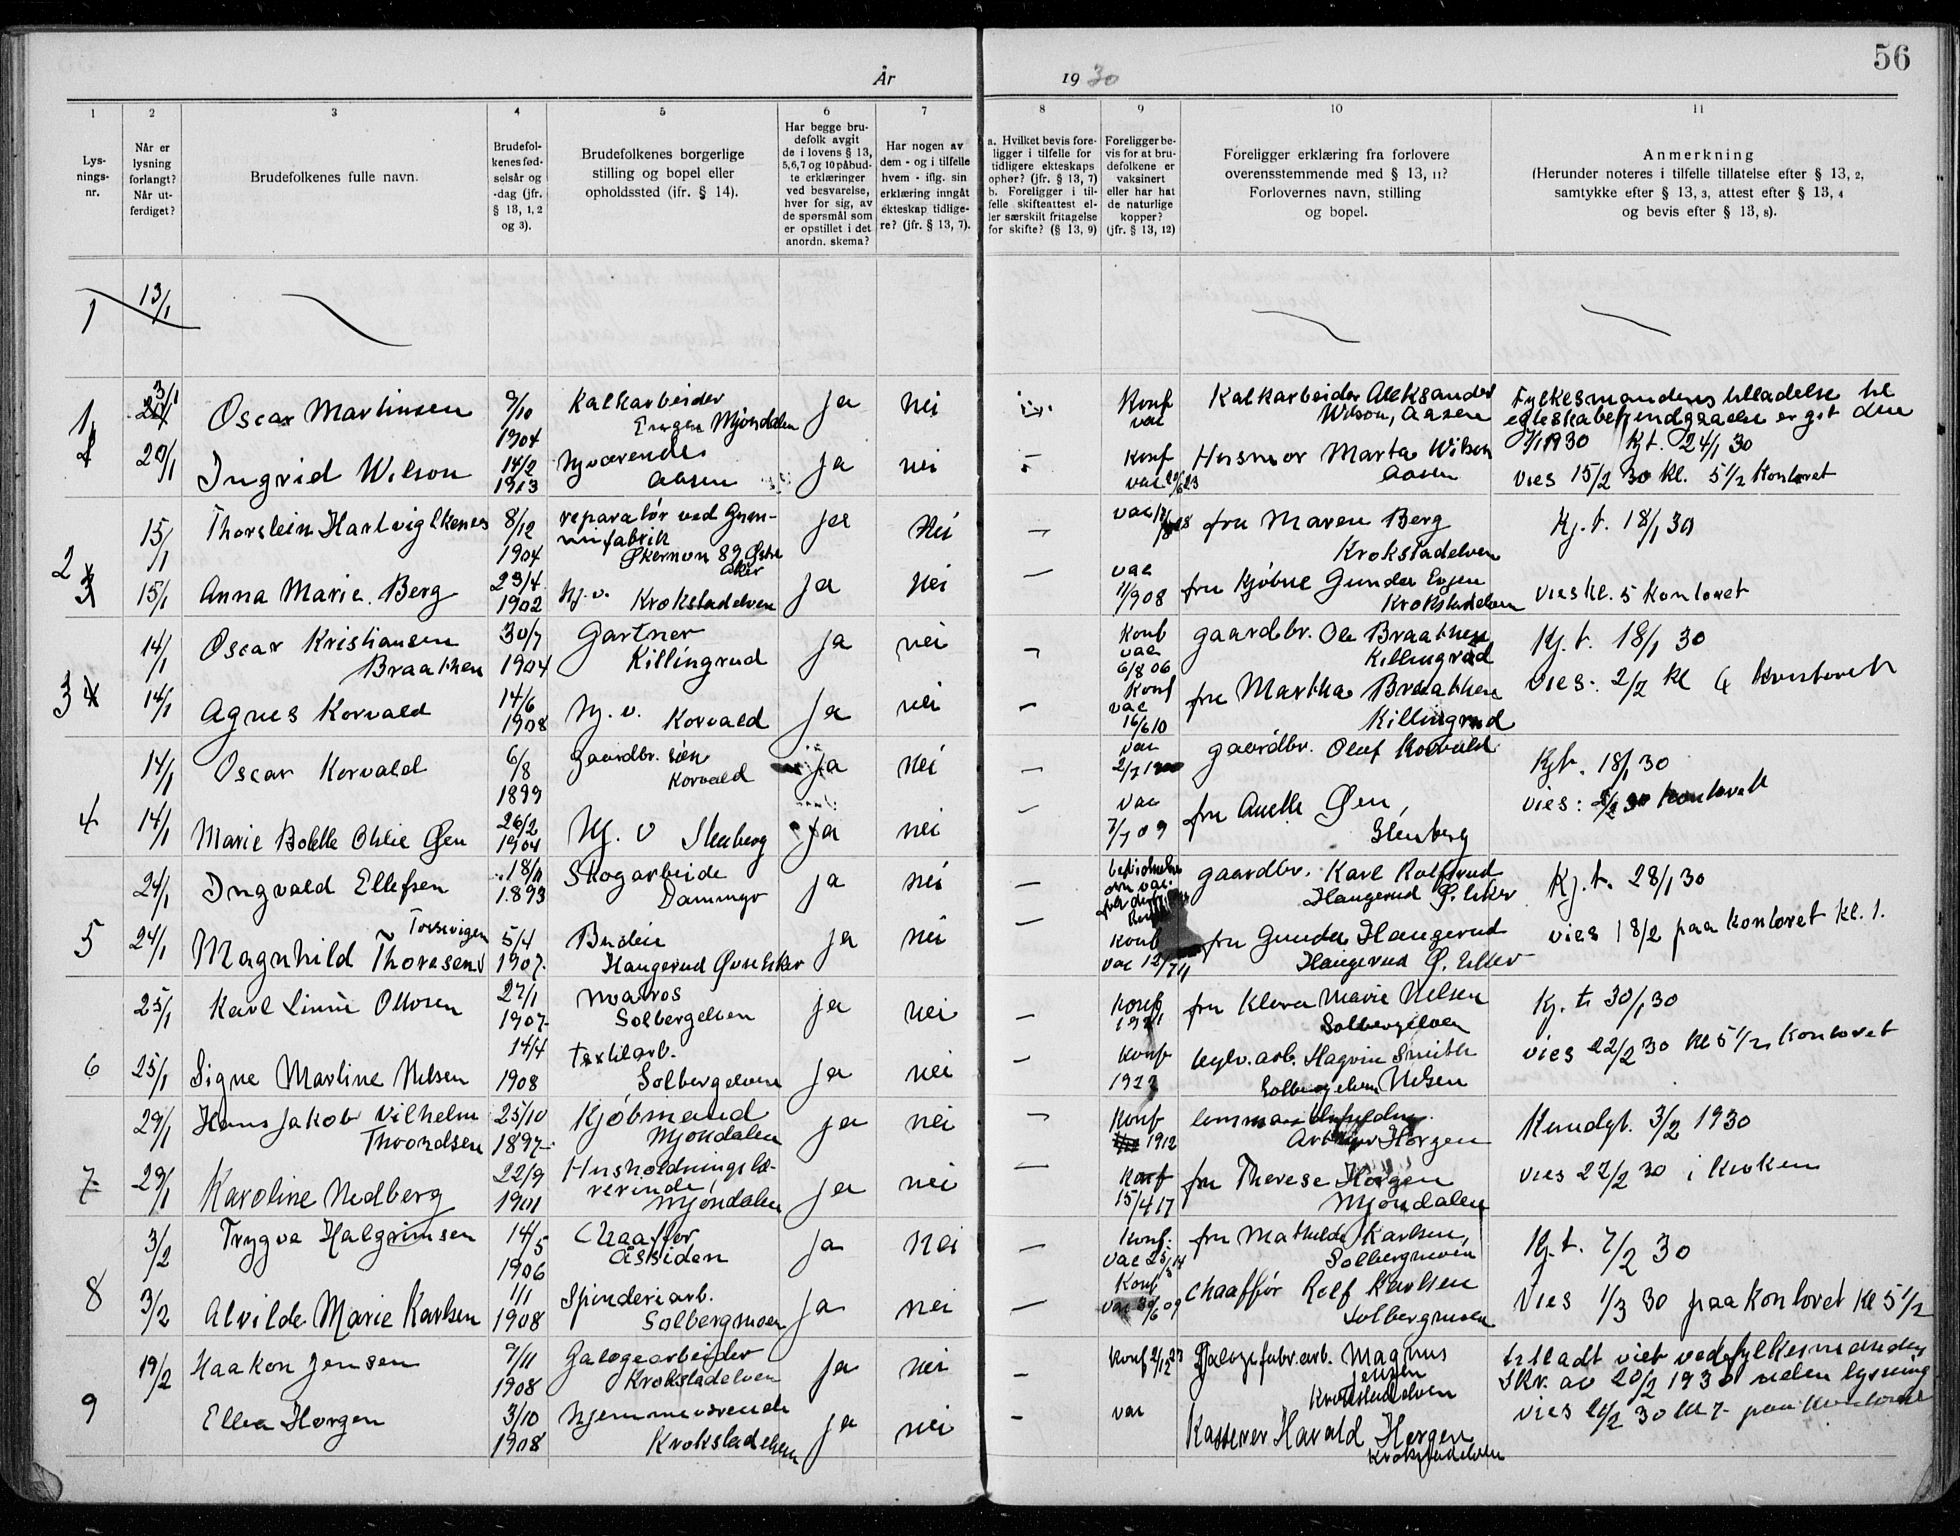 56
År 1930
1 2 3 4 5 6 7 8 9 10 11
Lys-
nings-
nr.
Når er
lysning
forlangt?
Når ut-
ferdiget?
Brudefolkenes fulle navn.
Brudefol-
kenes fød-
selsår og
-dag (jfr.
§ 13, 1, 2
og 3).
Brudefolkenes borgerlige
stilling og bopel eller
opholdssted (ifr. § 14).
Har begge bru-
defolk avgit
de i lovens § 13,
5,6,7 og 10 påbud-
te erklæringer
ved besvarelse,
hver for sig, av
de spørsmål som
er opstillet i det
anordn. skema?
Har nogen av
dem - og i tilfelle
hvem - iflg. sin
erklæring inngått
ekteskap tidlige-
re? (jfr. § 13, 7).
a. Hvilket bevis fore-
ligger i tilfelle for
tidligere ekteskaps
ophør? (jfr. § 13, 7)
b. Foreligger i til-
felle skifteattest el-
ler særskilt fritagelse
for skifte? (§ 13, 9)
Foreligger be-
vis for at bru-
defolkene er
vaksinert
eller har hat
de naturlige
kopper?
(jfr. § 13, 12)
Foreligger erklæring fra forlovere
overensstemmende med § 13, 11?
Forlovernes navn, stilling
og bopel.
Anmerkning
(Herunder noteres i tilfelle tillatelse efter § 13, 2,
samtykke efter § 13, 3, attest efter § 13, 4
og bevis efter § 13, 8).
1 13/1
1 3/1 Oscar Martinsen 9/10 1904 Kalkarbeider
Engen Mjøndalen ja nei Konf vac Kalkarbeider Aleksander
Wilson, Aasen Fylkesmandens tilladelse til
egteskabets indgaaelse er git den
20/1 Ingrid Wilson 14/2 1913 hjværende
Aasen ja nei Konf vac Husmor Marta Wilson
Aasen 7/1 1930 Kj.t. 24/1 30
vies 15/2 30 kl. 5 1/2 Kontoret
2 15/1 Thorstein Hartvig Ekenes 8/12 1904 reparatør ved Gum-
mifabrik
Økernvn 89 Østre
Aker ja nei — vac fru Maren Berg
Krokstadelven Kj.t. 18/1 30
15/1 Anna Marie Berg 23/4 1902 hj.v. Krokstadelven ja nei — vac 11/9 08 fru Kjøbm Gunda Evjen
Krokstadelven vies kl. 5 kontoret
3 14/1 Oscar Kristiansen
Braathen 30/7 1904 Gartner
Killingrud ja nei — Konf vac 6/8 06 gaardbr. Ole Braathen
Killingrud Kj.t. 18/1 30
14/1 Agnes Korvald 14/6 1908 hj.v. Korvald ja nei — Konf vac 16/6 10 fru Martha Braathen
Killingrud vies: 2/2 kl 6 kontoret
14/1 Oscar Korvald 6/8 1899 gaardbr. søn
Korvald ja nei — vac 2/7 1900 gaardbr. Oluf Korvald Kjt. 18/1 30
4 14/1 Marie Bolette Otilie Øen 26/2 1904 hj.v Stenberg ja nei — vac 7/7 09 fru Anette Øen,
Stenberg vies: 30 kontoret
24/1 Ingvald Ellefsen 18/11 1893 Skogarbeide
Dammyr ja nei — gaardbr. Karl Rolfsrud
Haugerud Ø. Eker Kj.t. 28/1 30
5 24/1 Magnhild Thoresen Torsvigen 5/4 1907. Budeie
Haugerud Øvre Eker ja nei — Konf vac 12/7 11 fru Gunda Haugerud
Haugerud Ø. Eker vies 18/2 paa kontoret kl. 1.
25/1 Karl Linné Ottosen 27/1 1907 matros
Solbergelven ja nei — Konf 1921 fru Klara Marie Nilsen
Solbergelven Kj.t. 30/1 30
6 25/1 Signe Marline Nilsen 14/4 1908 Textilarb.
Solbergelven ja nei — Konf 1922 Hagvin Smith
Nilsen
Solbergelven vies 22/2 30 kl 5 1/2 kontoret
29/1 Hans Jakob Vilhelm
Throndsen 25/10 1897 Kjøbmand
Mjøndalen ja nei — Konf 1912 Horgen Kundgt. 3/2 1930
7 29/1 Karoline Nedberg 22/9 1901 Husholdningslæ-
rerinde,
Mjøndalen ja nei — Konf 15/4 17 fru Therese Horgen
Mjøndalen vies 22/2 30 i kirken
3/2 Trygve Halgrimsen 14/5 1906 Chaaffør
Åssiden ja nei — Konf. vac fru Mathilde Karlsen,
Solbergmoen Kj.t. 7/2 30
8 3/2 Alvilde Marie Karlsen 1/1 1908 Spinderiarb.
Solbergmoen ja nei — Konf vac 30/6 09 chaaffør Rolf Karlsen
Solbergmoen Vies 1/3 30 paa kontoret kl 5 1/2
9 19/2 Haakon Jensen 9/11 1908 Galogearbeider
Krokstadelven ja nei — Konf 2/12 23 Galogefabr.arb. Magnus
Jensen
Krokstadelven tilladt viet ved fylkesmandens
skr. av 20/2 1930 uden lysning
Ella Horgen 3/10 1908 hjemmeværende
Krokstadelven ja nei — vac Kasserer Harald Horgen
Krokstadelven vies 30 kl 7 paa kontoret